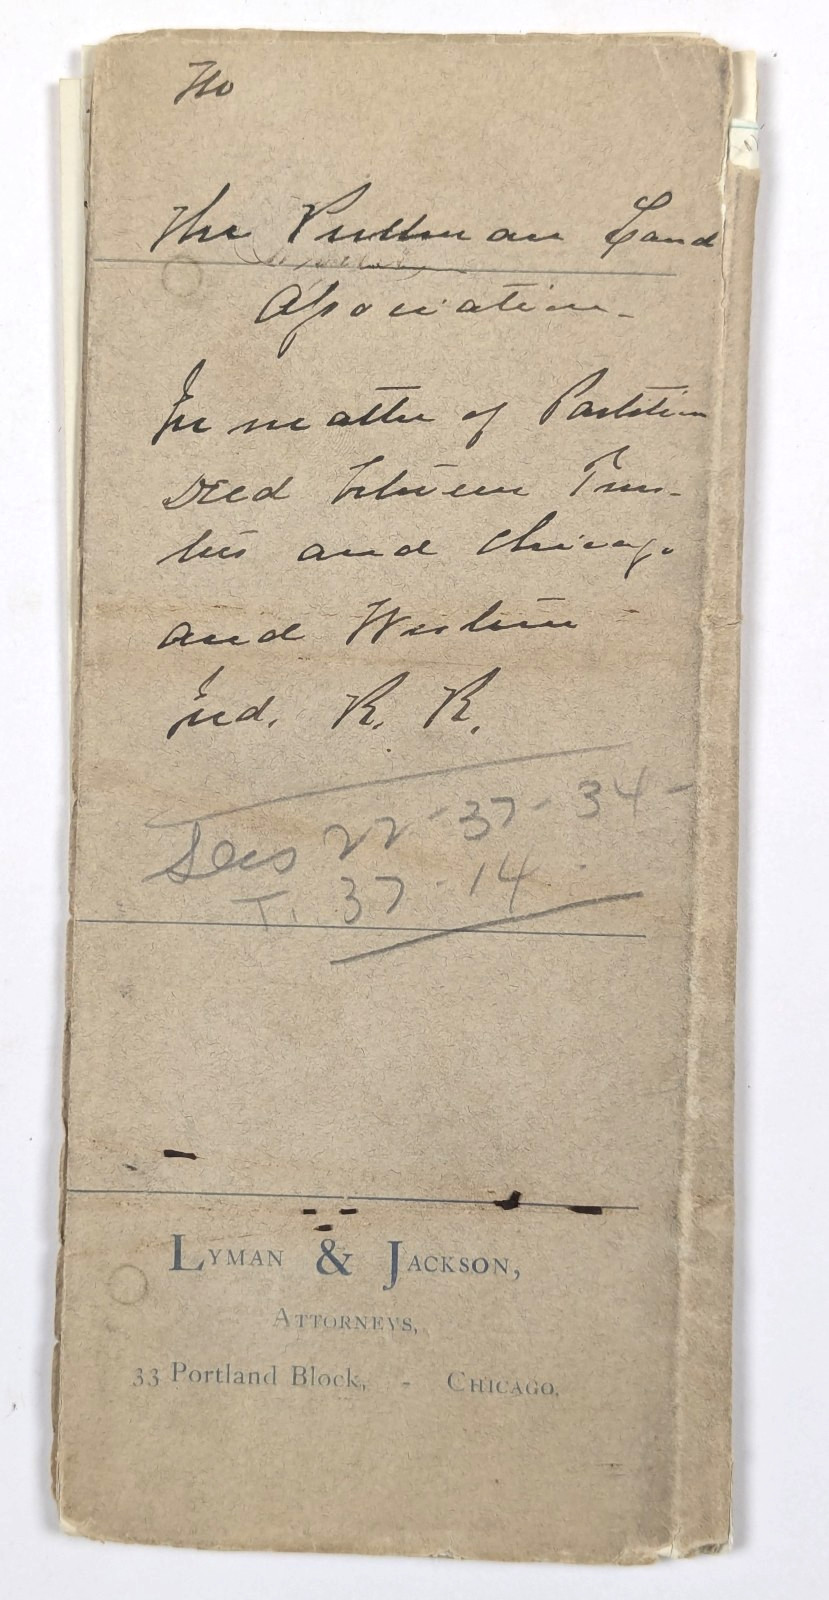 The Pullman Land
Association.
In matter of Partition
Deed between Trus-
tees and Chicago
and Western
Ind. R. R.
Secs 22-37-34-
T. 37-14
LYMAN & JACKSON,
ATTORNEYS,
33 Portland Block, - CHICAGO.